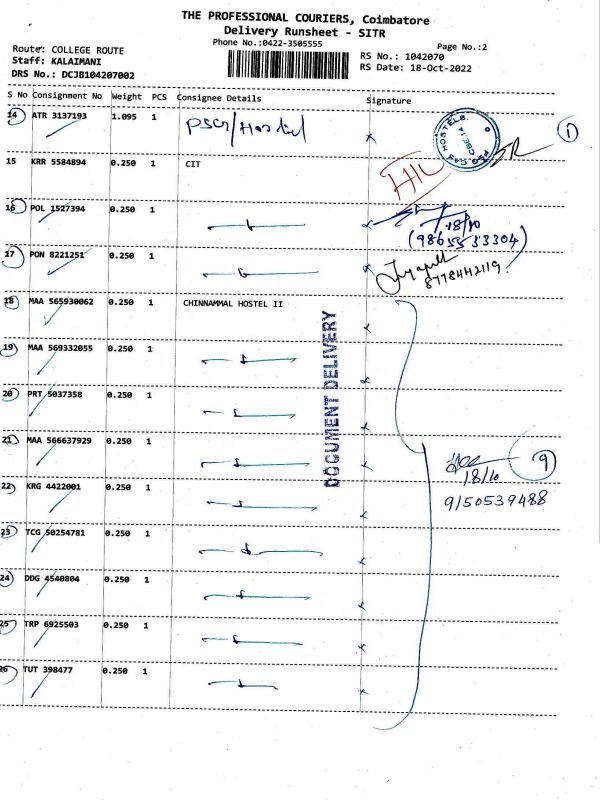 THE PROFESSIONAL COURIERS, Coimbatore
Delivery Runsheet - SITR
Phone No.:0422-3505555
Page No.:2
Route: COLLEGE ROUTE
Staff: KALAIMANI
DRS No.: DCJB104207002
RS No.: 1042070
RS Date: 18-Oct-2022
S No Consignment No Weight PCS Consignee Details Signature
14 ATR 3137193 1.095 1 PSG/Hostel
HOSTELS
15 KRR 5584894 0.250 1 CIT
16 POL 1527394 0.250 1
18/10
(9865533304)
17 PON 8221251 0.250 1
8778442119
18 MAA 565930062 0.250 1 CHINNAMMAL HOSTEL II
DOCUMENT DELIVERY
19 MAA 569332055 0.250 1
20 PRT 5037358 0.250 1
21 MAA 566637929 0.250 1
9
18/10
22 KRG 4422001 0.250 1
9150539488
23 TCG 50254781 0.250 1
24 DDG 4540804 0.250 1
25 TRP 6925503 0.250 1
26 TUT 398477 0.250 1